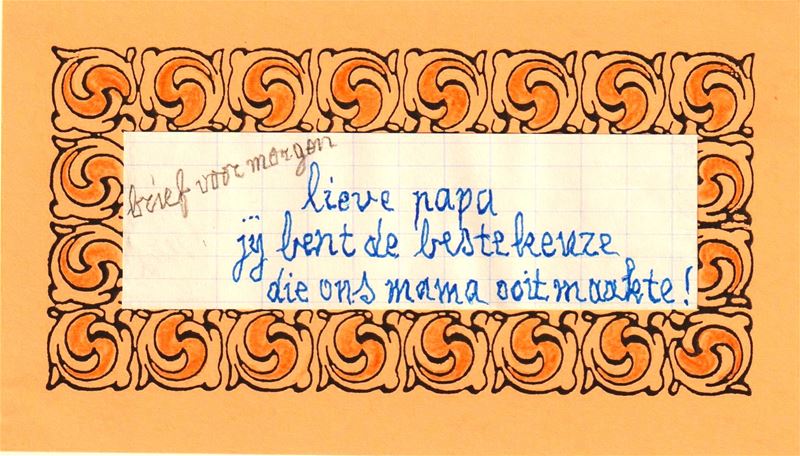 brief voor morgen
lieve papa
jÿ bent de beste keuze
die ons mama ooit maakte!